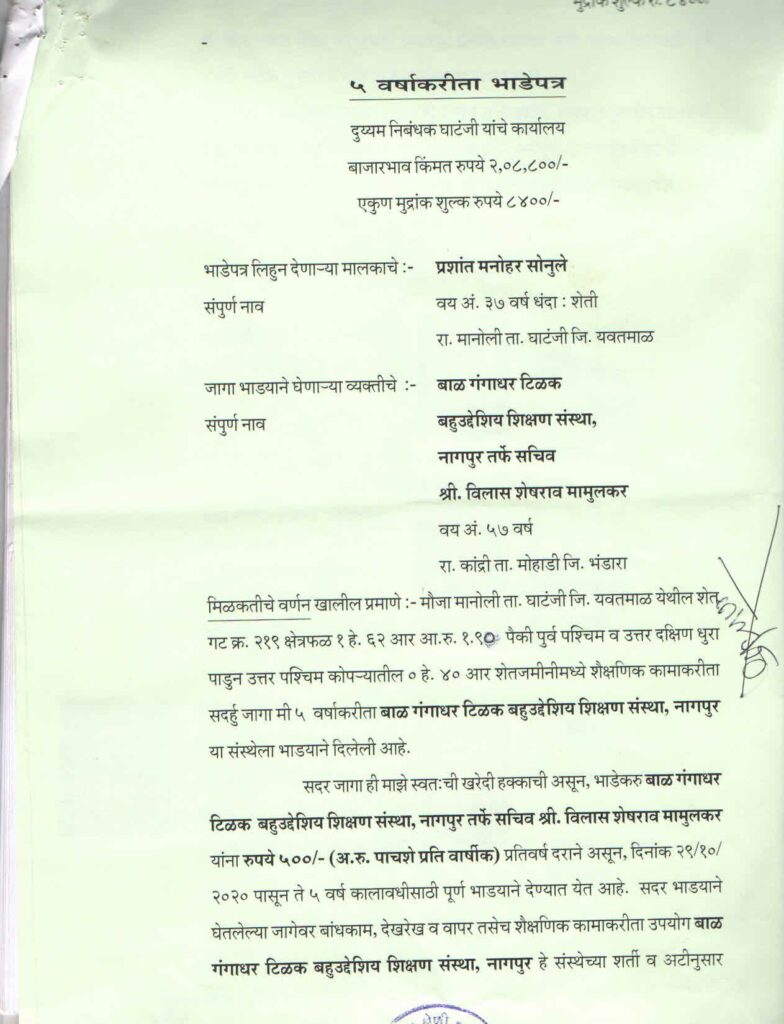 मुद्रांक शुल्क रु. ८४००/-
५ वर्षाकरीता भाडेपत्र
दुय्यम निबंधक घाटंजी यांचे कार्यालय
बाजारभाव किंमत रुपये २,०८,८००/-
एकुण मुद्रांक शुल्क रुपये ८४००/-
भाडेपत्र लिहुन देणाऱ्या मालकाचे :- प्रशांत मनोहर सोनुले
संपुर्ण नाव वय अं. ३७ वर्ष धंदा : शेती
रा. मानोली ता. घाटंजी जि. यवतमाळ
जागा भाडयाने घेणाऱ्या व्यक्तीचे :- बाळ गंगाधर टिळक
संपुर्ण नाव बहुउद्देशिय शिक्षण संस्था,
नागपुर तर्फे सचिव
श्री. विलास शेषराव मामुलकर
वय अं. ५७ वर्ष
रा. कांद्री ता. मोहाडी जि. भंडारा
मिळकतीचे वर्णन खालील प्रमाणे :- मौजा मानोली ता. घाटंजी जि. यवतमाळ येथील शेत
गट क्र. २१९ क्षेत्रफळ १ हे. ६२ आर आ.रु. १.९० पैकी पुर्व पश्चिम व उत्तर दक्षिण धुरा
पाडुन उत्तर पश्चिम कोपऱ्यातील ० हे. ४० आर शेतजमीनीमध्ये शैक्षणिक कामाकरीता
सदर्हु जागा मी ५ वर्षाकरीता बाळ गंगाधर टिळक बहुउद्देशिय शिक्षण संस्था, नागपुर
या संस्थेला भाडयाने दिलेली आहे.
सदर जागा ही माझे स्वत:ची खरेदी हक्काची असून, भाडेकरु बाळ गंगाधर
टिळक बहुउद्देशिय शिक्षण संस्था, नागपुर तर्फे सचिव श्री. विलास शेषराव मामुलकर
यांना रुपये ५००/- (अ.रु. पाचशे प्रति वार्षीक) प्रतिवर्ष दराने असून, दिनांक २९/१०/
२०२० पासून ते ५ वर्ष कालावधीसाठी पूर्ण भाडयाने देण्यात येत आहे. सदर भाडयाने
घेतलेल्या जागेवर बांधकाम, देखरेख व वापर तसेच शैक्षणिक कामाकरीता उपयोग बाळ
गंगाधर टिळक बहुउद्देशिय शिक्षण संस्था, नागपुर हे संस्थेच्या शर्ती व अटीनुसार